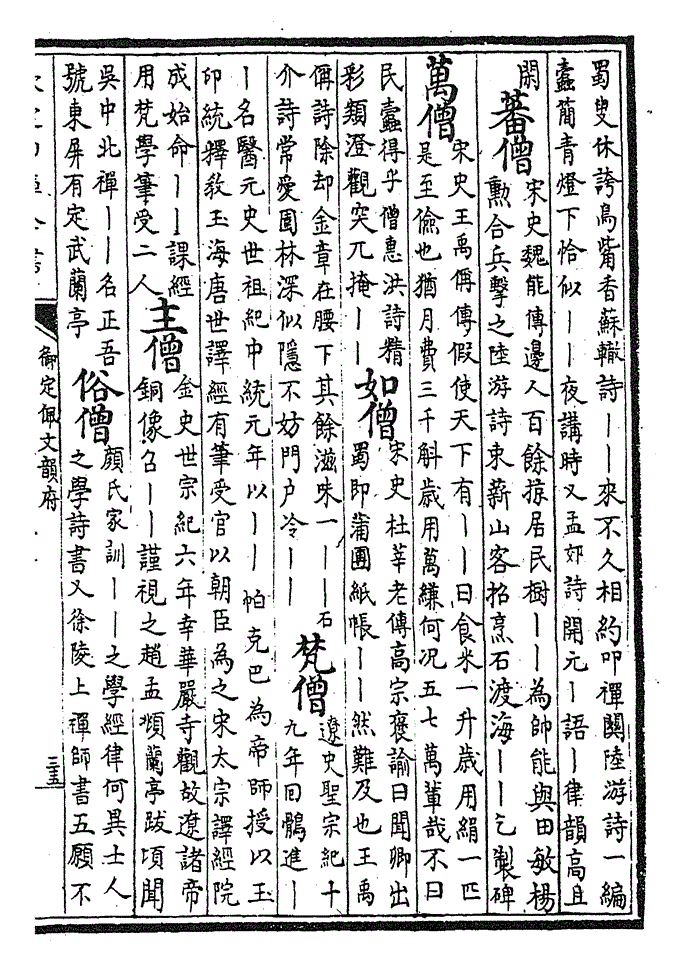 蜀叟休誇鳥觜香蘇轍詩丨丨來不久相約叩禪關陸游詩一編
蠧簡青燈下恰似丨丨夜講時又孟郊詩開元丨語丨律韻高且
閑
蕃僧
宋史魏能傳邊人百餘掠居民樹丨丨為帥能與田敏楊
勲合兵擊之陸游詩束薪山客招烹石渡海丨丨乞製碑
萬僧
宋史王禹偁傳假使天下有丨丨日食米一升歲用絹一匹
是至儉也猶月費三千斛歲用萬縑何况五七萬輩哉不曰
民蠧得乎僧惠洪詩精
彩類澄觀突兀掩丨丨
如僧
宋史杜莘老傳高宗褒諭曰聞卿出
蜀即蒲團紙帳丨丨然難及也王禹
偁詩除却金章在腰下其餘滋味一丨丨石
介詩常愛園林深似隱不妨門户冷丨丨
梵僧
遼史聖宗紀十
九年回鶻進丨
丨名醫元史世祖紀中統元年以丨丨帕克巴為帝師授以玉
印統釋教玉海唐世譯經有筆受官以朝臣為之宋太宗譯經院
成始命丨丨課經
用梵學筆受二人
主僧
金史世宗紀六年幸華嚴寺觀故遼諸帝
銅像召丨丨謹視之趙孟頫蘭亭跋頃聞
吳中北禪丨丨名正吾
號東屏有定武蘭亭
俗僧
顔氏家訓丨丨之學經律何異士人
之學詩書又徐陵上禪師書五願不
御定佩文韻府
三五